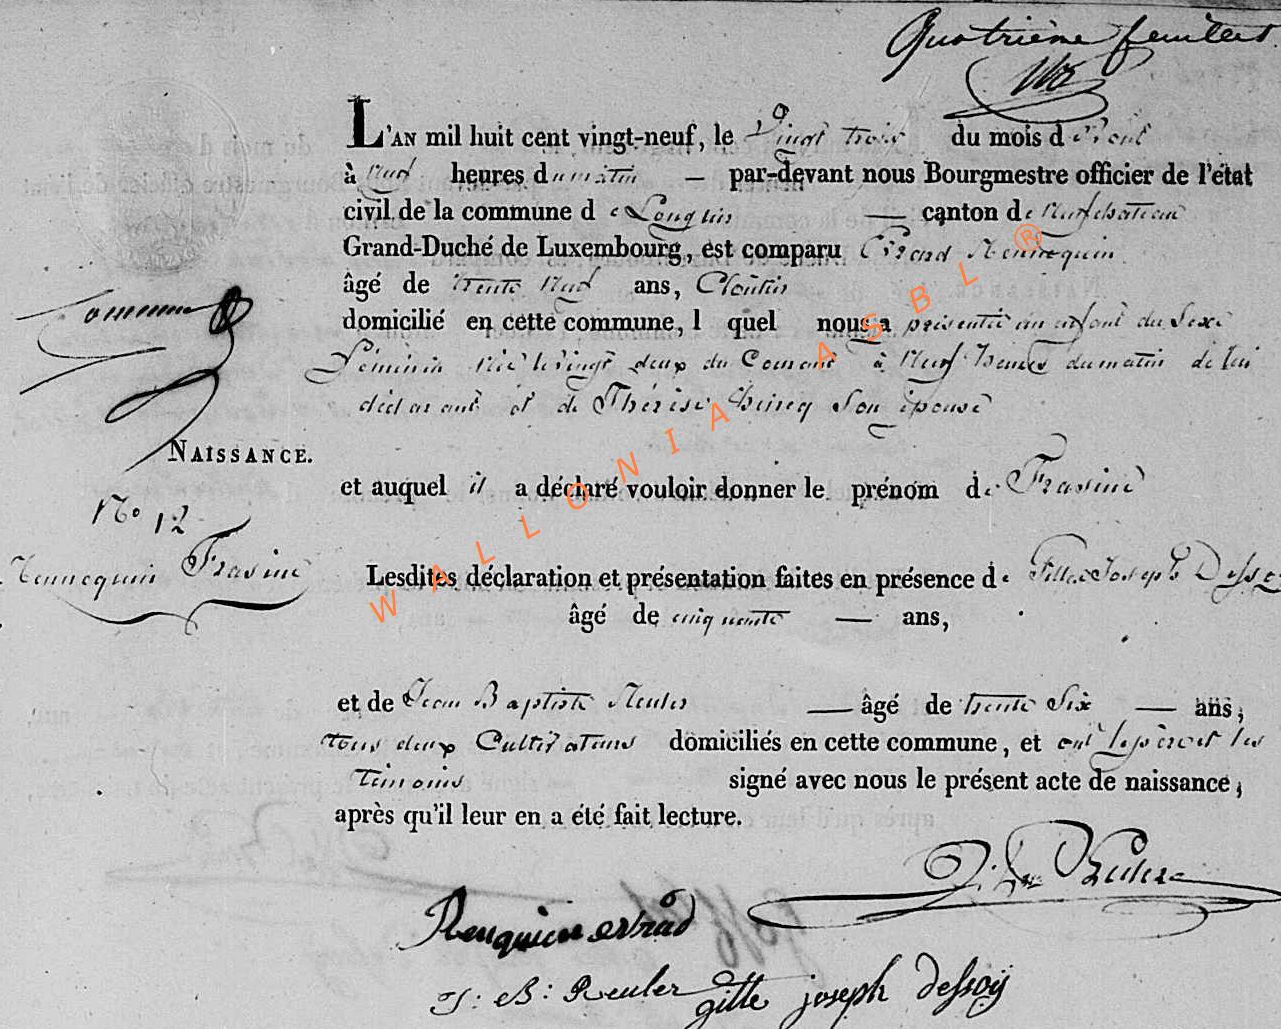 Quatrième feuillet
L'AN mil huit cent vingt-neuf, le Vingt trois du mois d'Aout
à Neuf heures du matin — par-devant nous Bourgmestre officier de l'état
civil de la commune de Longlier — canton de Neufchateau
Grand-Duché de Luxembourg, est comparu Erard Hennequin
âgé de trente Neuf ans, Cloutier
domicilié en cette commune, lequel nous a présenté un enfant du Sexe
Féminin Née le vingt deux du Courant à Neuf heures du matin de lui
déclarant et de Thérèse son épouse
NAISSANCE.
et auquel il a déclaré vouloir donner le prénom de Frasine
No 12
Hennequin Frasine
Lesdites déclaration et présentation faites en présence de Gille Joseph Dessoy
âgé de cinquante — ans,
et de Jean Baptiste Reuler — âgé de trente Six — ans,
tous deux Cultivateurs domiciliés en cette commune, et ont le père et les
témoins signé avec nous le présent acte de naissance,
après qu'il leur en a été fait lecture.
J: B: Reuler gitte joseph dessoÿ
WALLONIA ASBL ®